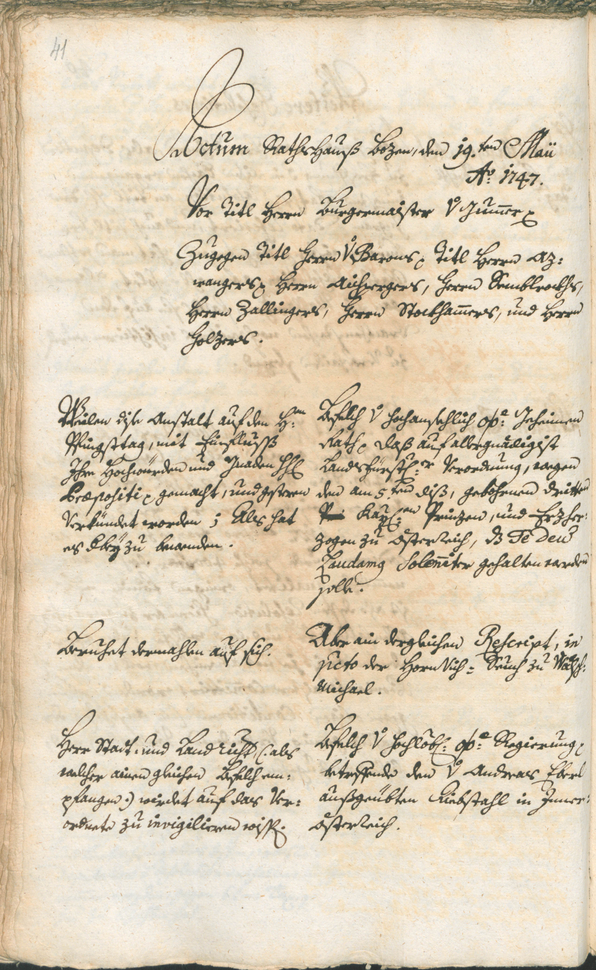 41
Actum Rathshauß Bozen, den 19.ten Maii
Ao. 1747.
Vor Titl Herrn Burgermaister V. Gummer
Zugegen Titl Herrn V. Barons, Titl Herrn Az:
wangers, Herrn Aichpergers, Herrn Semblrockhs,
Herrn Zallingers, Herrn Stockhamers, und Herrn
Holzers.
Weilen dise Anstalt auf den H:
Pfingsttag, mit Einfluß
Ihro Hochwürden und Gnaden Hl
Præpositi gemacht, und gestern
verkündet worden; Als hat
es darbey zu bewenden.
Befelch V. hochansehlich o: ö: Geheimen
Rath, daß auf allergnädigist
Landsfürstl:er Verordnung, wegen
den am 5.ten diß, gebohrnen dritten
Kay: Prinzen, und Erzher:
zogen zu Össterreich, das Te Deum
Laudamus Solenniter gehalten werden
solle.
Beruhet dermahlen auf sich.
Aber ain dergleichen Rescript, in
puncto der Hornvich-Seuch zu Wälsch
Michael.
Herr Stadt- und Landrichter (: als
welcher ainen gleichen Befelch em:
pfangen :) würdet auf das Ver:
ordnete zu invigilieren wissen.
Befelch V. hochlöbl: o: ö: Regierung,
betreffende den V. Andreas Eberl
außgeübten Diebstahl in Inner:
össterreich.